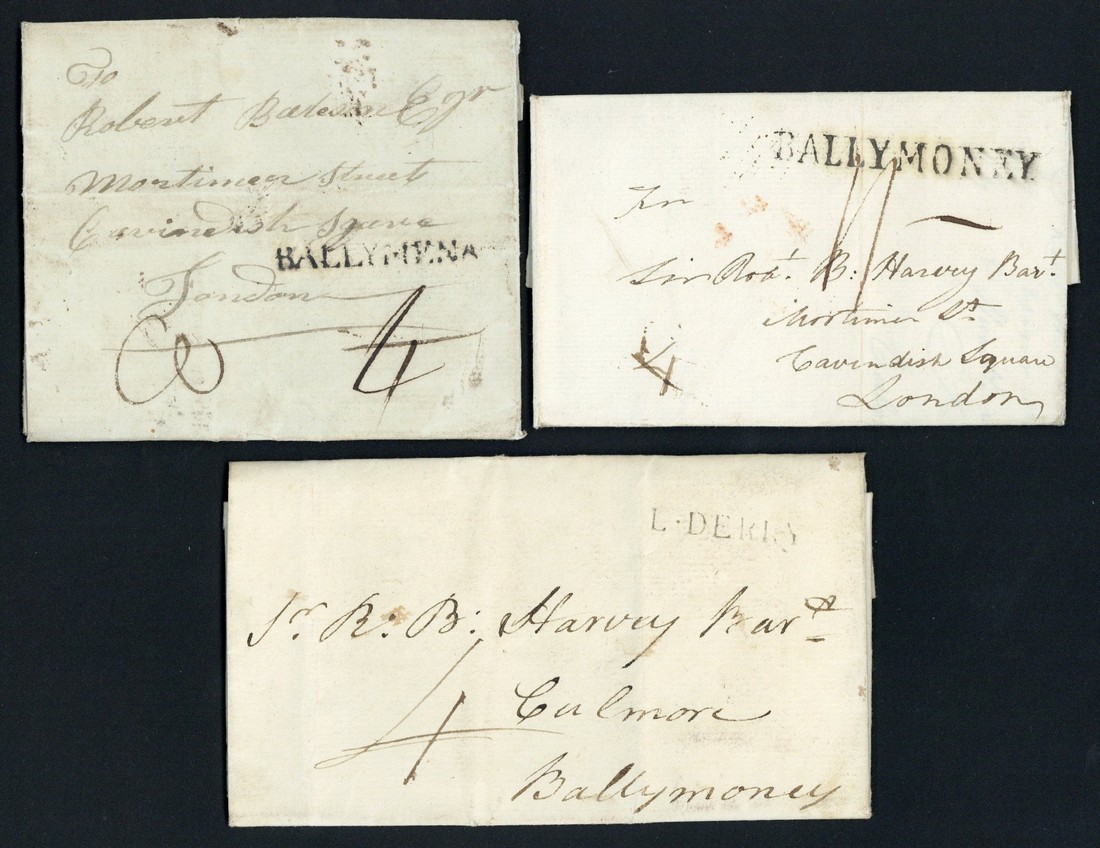 To
Robert Bateson Esqr
Mortimeer Street
Cavindish Square
BALLYMENA
London
8 4
BALLYMONEY
Sir Robt. B: Harvey Bart.
Mortimer St
4
Cavendish Square
London
L·DERRY
Sr. R: B: Harvey Bart
4
Culmore
Ballymoney